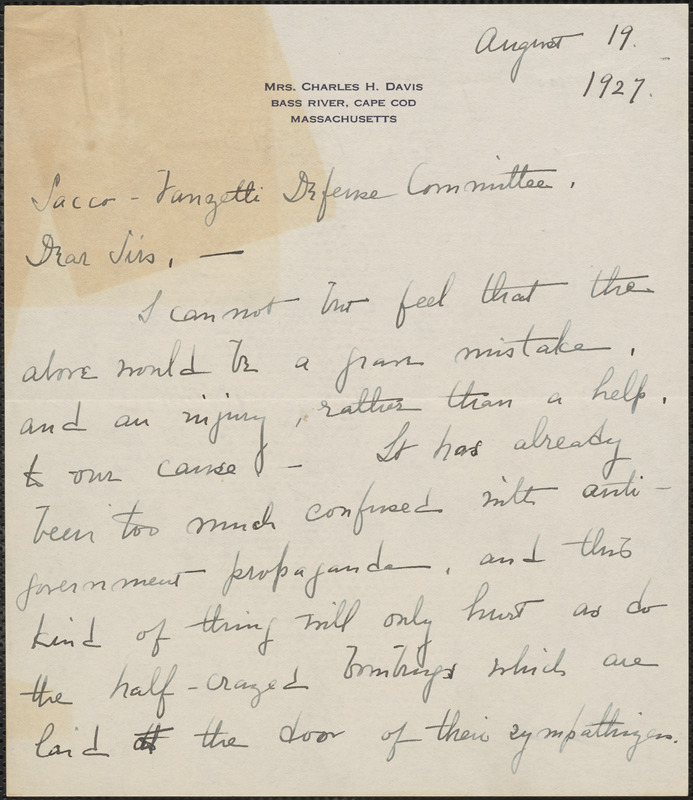 August 19.
1927.
MRS. CHARLES H. DAVIS
BASS RIVER, CAPE COD
MASSACHUSETTS
Sacco-Vanzetti Defense Committee.
Dear Sirs, —
I cannot but feel that the
above would be a grave mistake,
and an injury, rather than a help,
to our cause. — It has already
been too much confused with anti-
government propaganda, and this
kind of thing will only hurt as do
the half-crazed bombings which are
laid at the door of their sympathizers.